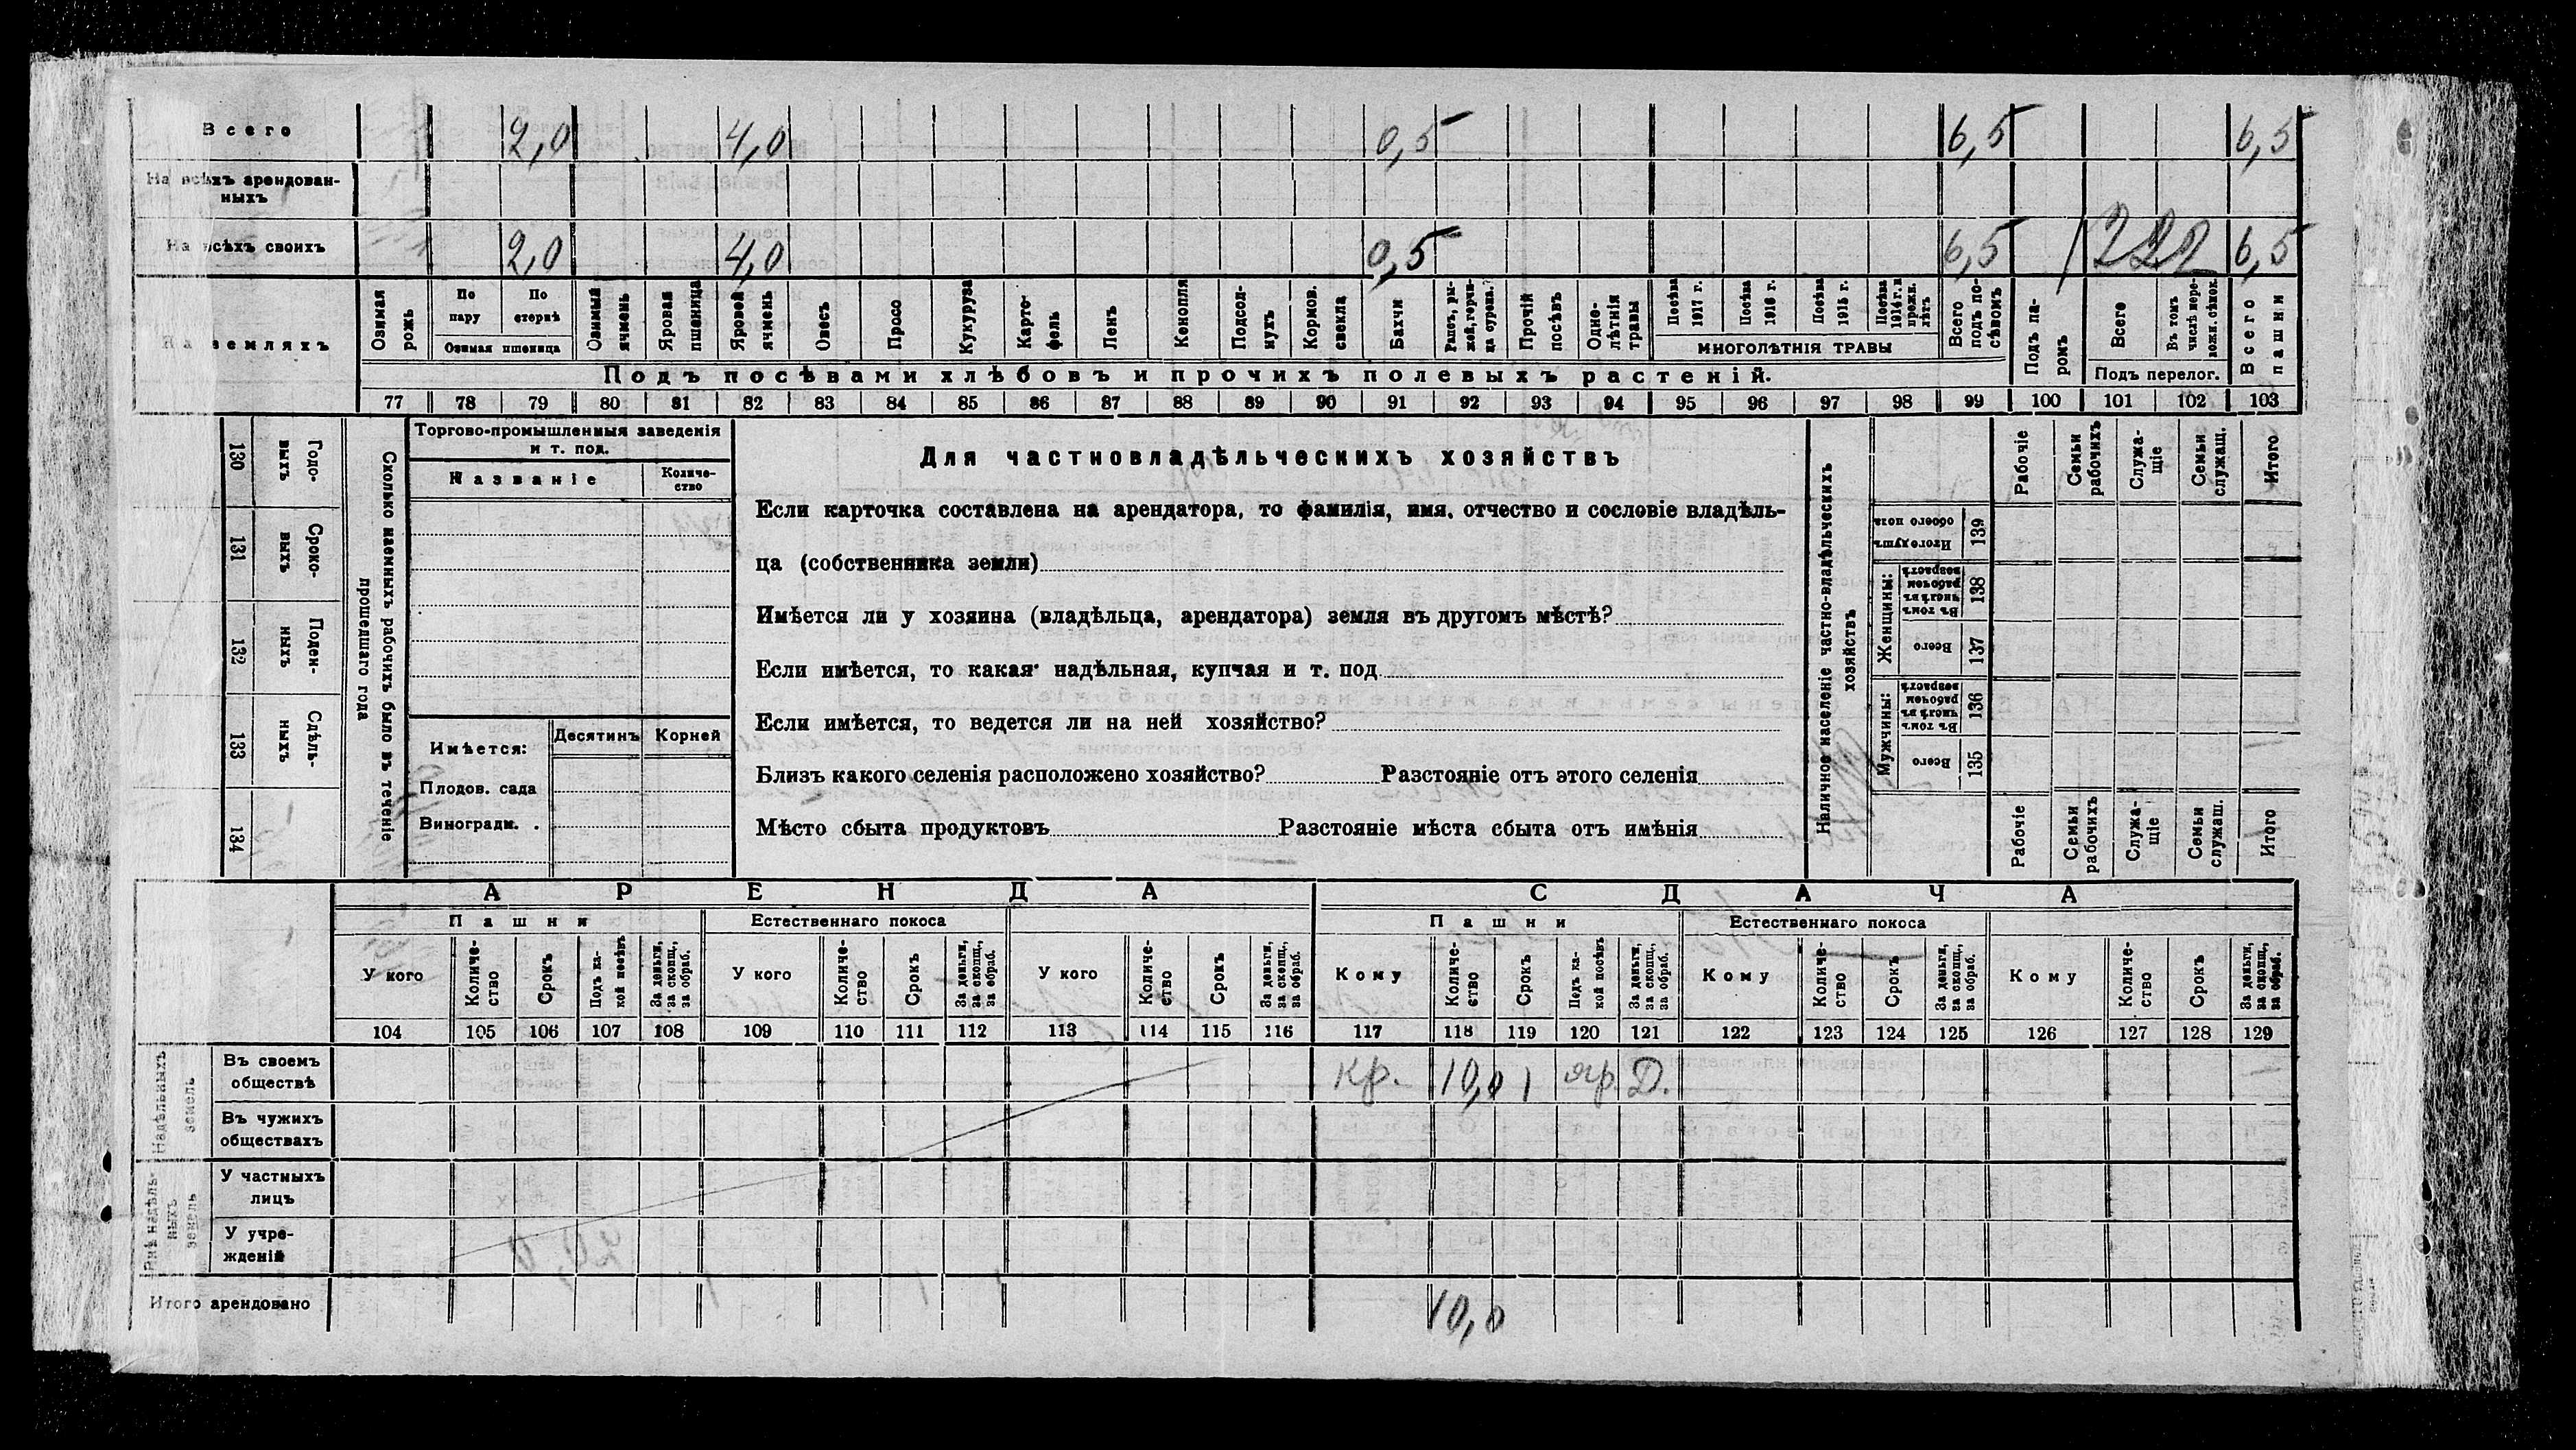 Всего 2,0 4,0 0,5 6,5 6,5
На всѣхъ арендован-
ныхъ
На всѣхъ своихъ 2,0 4,0 0,5 6,5 6,5
На земляхъ
Озимая рожь
По пару
По стернѣ
Озимая пшеница
Озимый ячмень
Яровая пшеница
Яровой ячмень
Овесъ
Просо
Кукуруза
Карто-
фель
Ленъ
Конопля
Подсол-
нухъ
Кормов. свекла
Бахчи
Прочій посѣвъ
Одно-
лѣтнія травы
Посѣва 1917 г.
Посѣва 1916 г.
Посѣва 1915 г.
Посѣва 1914 г. и прежн. лѣтъ
МНОГОЛѢТНІЯ ТРАВЫ
Всего подъ по-
сѣвомъ
Подъ па-
ромъ
Всего
Подъ перелог.
Всего пашни
Подъ посѣвами хлѣбовъ и прочихъ полевыхъ растеній.
77 78 79 80 81 82 83 84 85 86 87 88 89 90 91 92 93 94 95 96 97 98 99 100 101 102 103
130 Годо-
выхъ
131 Сроко-
выхъ
132 Поден-
ныхъ
133 Сдѣль-
ныхъ
134
Сколько наемныхъ рабочихъ было въ теченіе
прошедшаго года
Торгово-промышленныя заведенія
и т. под.
Названіе
Количе-
ство
Имѣется:
Десятинъ Корней
Плодов. сада
Виноградн. .
Для частновладѣльческихъ хозяйствъ
Если карточка составлена на арендатора, то фамилія, имя, отчество и сословіе владѣль-
ца (собственника земли)
Имѣется ли у хозяина (владѣльца, арендатора) земля въ другомъ мѣстѣ?
Если имѣется, то какая· надѣльная, купчая и т. под.
Если имѣется, то ведется ли на ней хозяйство?
Близъ какого селенія расположено хозяйство? Разстояніе отъ этого селенія
Мѣсто сбыта продуктовъ Разстояніе мѣста сбыта отъ имѣнія
Наличное населеніе частно-владѣльческихъ
хозяйствъ
Рабочіе
Семьи рабочихъ
Служа-
щіе
Семьи служащ.
Итого
Итого душъ обоего пола 139
Женщины:
Въ томъ числѣ въ рабочем возрастѣ 138
Всего 137
Мужчины:
Въ томъ числѣ въ рабочем возрастѣ 136
Всего 135
Рабочіе
Семьи рабочихъ
Служа-
щіе
Семьи служащ.
Итого
АРЕНДА СДАЧА
Пашни Естественнаго покоса Пашни Естественнаго покоса
У кого
Количе-
ство
Срокъ
Подъ ка-
кой посѣвъ
За деньги, за скопщ., за обраб.
У кого
Количе-
ство
Срокъ
За деньги, за скопщ., за обраб.
У кого
Количе-
ство
Срокъ
За деньги, за скопщ., за обраб.
Кому
Количе-
ство
Срокъ
Подъ ка-
кой посѣвъ
За деньги, за скопщ., за обраб.
Кому
Количе-
ство
Срокъ
За деньги, за скопщ., за обраб.
Кому
Количе-
ство
Срокъ
За деньги, за скопщ., за обраб.
104 105 106 107 108 109 110 111 112 113 114 115 116 117 118 119 120 121 122 123 124 125 126 127 128 129
Надѣльныхъ
земель
Въ своемъ
обществѣ
кр. 10,0 1 яр. Д.
Въ чужихъ
обществахъ
Внѣ надѣль-
ныхъ
земель
У частныхъ
лицъ
У учре-
жденій
Итого арендовано 10,0